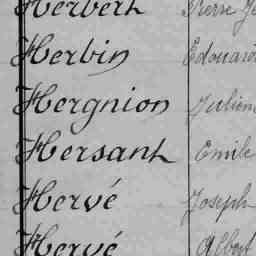 Herberh Pierre
Herbin Edouard
Hergnion Julien
Hersant Emile
Hervé Joseph
Hervé Albert